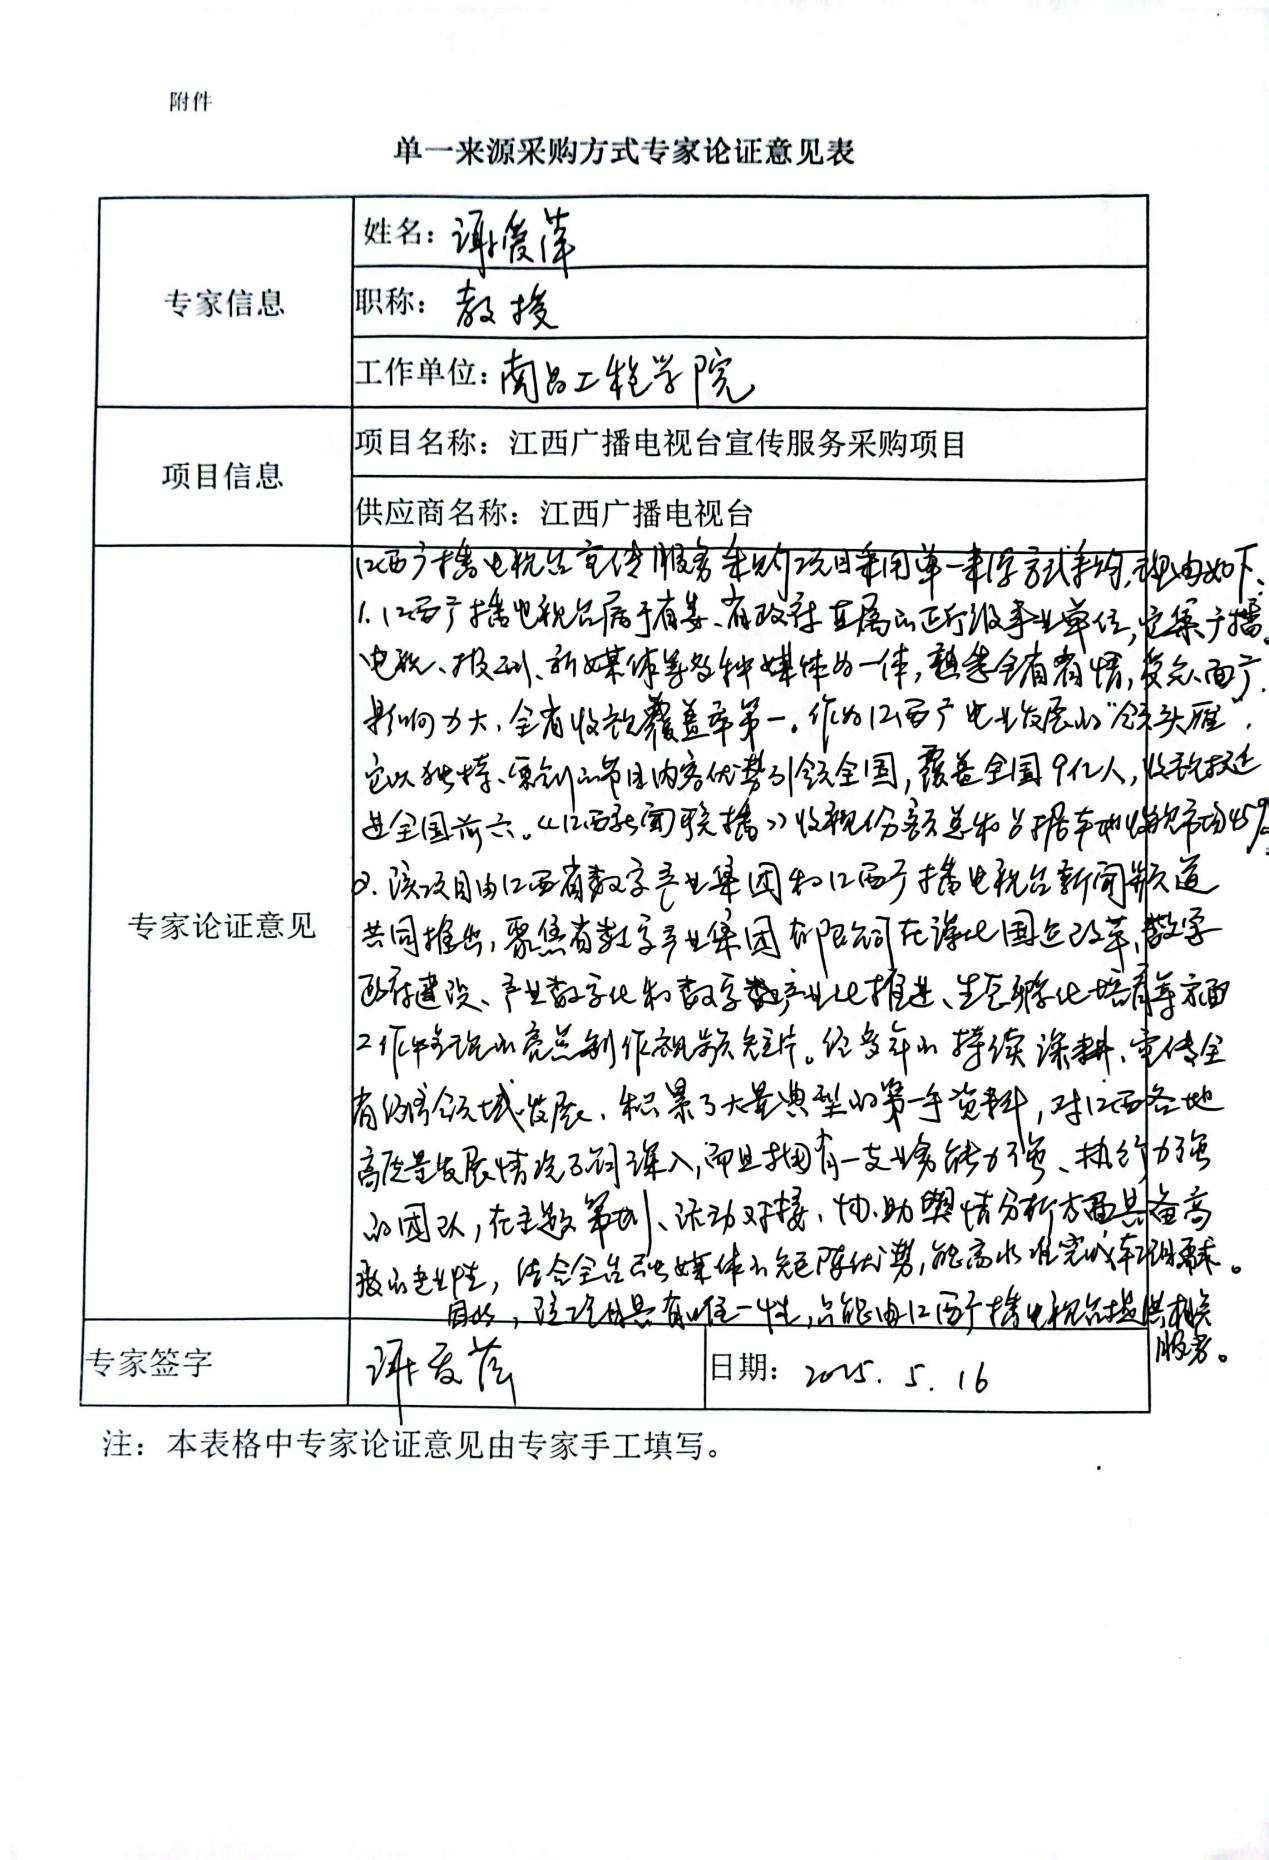 附件
单一来源采购方式专家论证意见表
专家信息
姓名：谢爱萍
职称：教授
工作单位：南昌工程学院
项目信息
项目名称：江西广播电视台宣传服务采购项目
供应商名称：江西广播电视台
专家论证意见
江西广播电视台宣传服务采购项目采用单一来源方式采购，理由如下：
1.江西广播电视台属于省委、省政府直属的正厅级事业单位，它集广播、
电视、报刊、新媒体等多种媒体为一体，熟悉全省省情，受众面广，
影响力大，全省收视覆盖率第一。作为江西广电业发展的“领头雁”，
它以独特、原创的节目内容优势引领全国，覆盖全国9亿人，收视挺近
进全国前六。《江西新闻联播》收视份额总和占据本地收视市场45%。
2.该项目由江西省数字产业集团和江西广播电视台新闻频道
共同推出，聚焦省数字产业集团有限公司在深化国企改革、数字
政府建设、产业数字化和数字产业化推进、生态孵化培育等方面
工作中涌现的亮点制作视频短片。经多年的持续深耕、宣传全
省经济领域发展，积累了大量典型的第一手资料，对江西各地
高质量发展情况了解深入，而且拥有一支业务能力强、执行力强
的团队，在主题策划、活动对接、协助舆情分析方面具备高
效的专业性，结合全台融媒体的矩阵优势，能高水准完成本项目需求。
因此，该项目具有唯一性，只能由江西广播电视台提供相关
服务。
专家签字
谢爱萍
日期：2025.5.16
注：本表格中专家论证意见由专家手工填写。